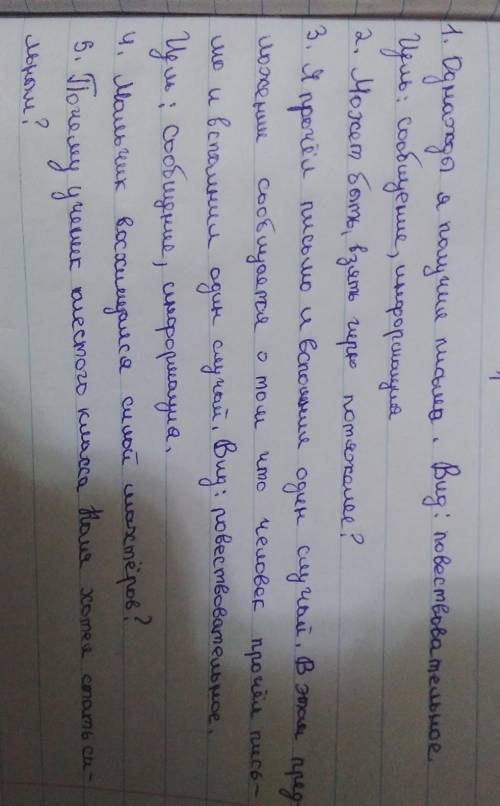 1. Однажды я получил письмо. Вид: повествовательное.
Цель: сообщение, информация
2. Может быть, взять гирю потяжелее?
3. Я прочёл письмо и вспомнил один случай. В этом пред-
ложении сообщается о том что человек прочёл пись-
мо и вспомнил один случай. Вид: повествовательное.
Цель: сообщение, информация.
4. Мальчик восхищался силой шахтёров?
5. Почему ученик шестого класса Коля хотел стать си-
льным?